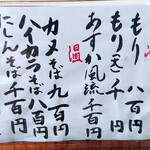 もり 八百円
もり 千円
あすか風流 千百円
温
カメそば 九百円
ハイカラそば 八百円
にしんそば 千百円